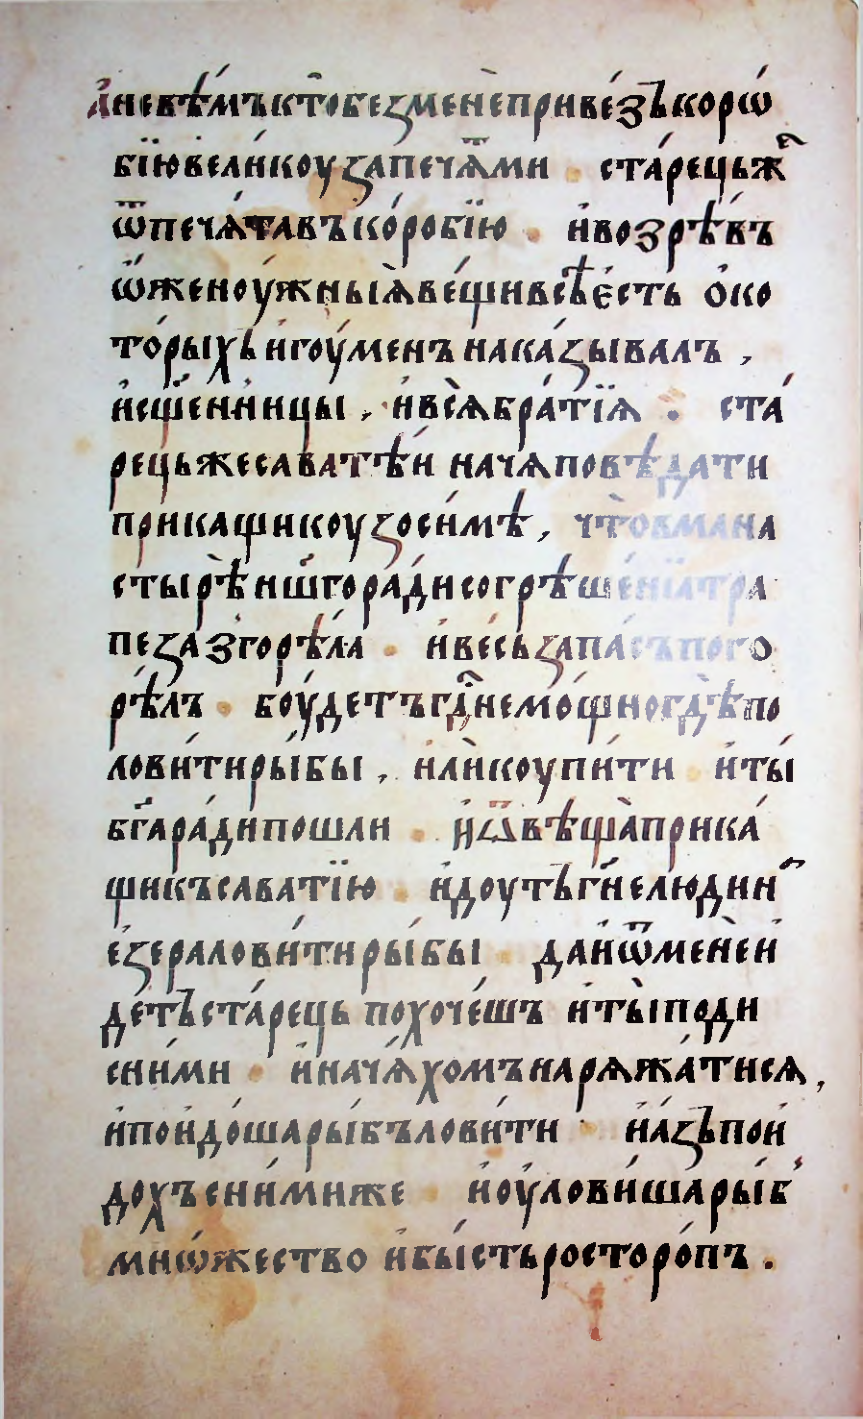 А́невѣ́мъктобезменѐприве́зъкорѡ́
бїювели́коузапечѧ̑ми . ста́рецьж҇е
ѿпечѧ́тавъко́робїю . и҆возрѣ́въ
ѡ҆́женоу́жныѧ̀ве́щивсѣ̀є҆́сть ѻ҆ко
то́рыхъи҆гоу́менънака́зывалъ ,
и҆сщ҃е́нни́цы , и҆всѧ̀бра́тїѧ . ста́
рецьжесаватѣ́и начѧ̀повѣ́дати
прикащикоузоси́мѣ, что̀вмана
стырѣ̀нш҃гора́дисогрѣше́нїѧтра
пезазгорѣ́ла . и҆ве́сьзапа́съпого
рѣ́лъ . боу́детъгдн҇емо́щногдѣ̀по
лови́тиры́бы , и҆лѝкоупи́ти и҆ты́
бг҃ара́дипошли . и҆ѿвѣща̀прика́
щикъсаватїю . и҆доу́тъгн҃елюдин҇а
е҆́зералови́тиры́бы даи҆ѿменѐи҆
де́тъста́рець похоче́шъ и҆ты̀поди
сни́ми . и҆начѧ́хомънарѧжа́тисѧ,
и҆поидо́шары́бълови́ти . и҆а́зъпои
до́хъсни́миже . и҆оу҆лови́шары́б̾
мнѡ́жество и҆бы́стьросторо́пъ .